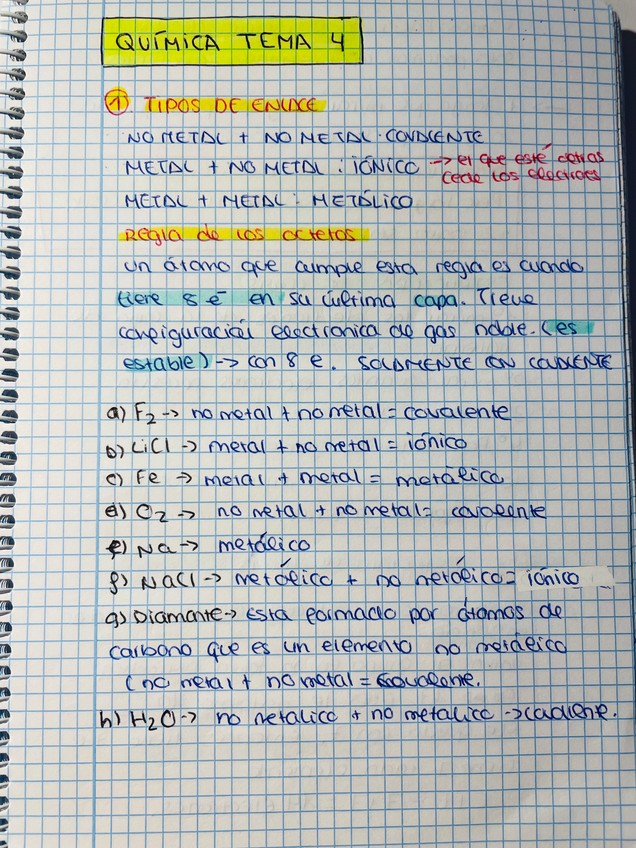 QUÍMICA TEMA 4
① TIPOS DE ENLACE
NO METAL + NO METAL: COVALENTE
METAL + NO METAL: IÓNICO → el que esté detras
cede los electrones
METAL + METAL: METÁLICO
Regla de los octetos
Un átomo que cumple esta regla es cuando
tiene 8 e⁻ en su última capa. Tiene
configuración electronica de gas noble. (es
estable) → con 8 e. SOLAMENTE EN COVALENTE
a) F₂ → no metal + no metal = covalente
b) LiCl → metal + no metal = iónico
c) Fe → metal + metal = metálico
d) O₂ → no metal + no metal = covalente
e) Na → metálico
f) NaCl → metálico + no metálico = iónico
g) Diamante → Esta formado por átomos de
carbono que es un elemento no metálico
(no metal + no metal = covalente.
h) H₂O → no metalico + no metalico →